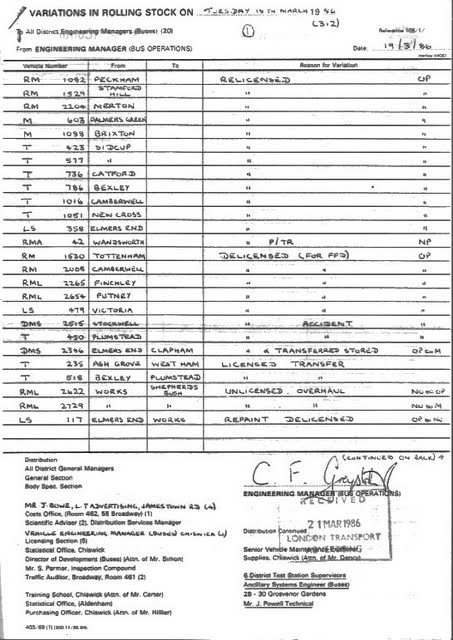 VARIATIONS IN ROLLING STOCK ON TUESDAY 18TH MARCH 1986
(312)
To All District Engineering Managers (Buses) (20)
①
Reference 105/1/
From ENGINEERING MANAGER (BUS OPERATIONS)
Date 19/3/86
Vehicle Number From To Reason for Variation
RM 1082 PECKHAM RELICENSED OP
RM 1529 STAMFORD HILL " "
RM 2204 MERTON " "
M 603 PALMERS GREEN " "
M 1098 BRIXTON " "
T 423 SIDCUP " "
T 577 " " "
T 736 CATFORD " "
T 786 BEXLEY " "
T 1016 CAMBERWELL " "
T 1051 NEW CROSS " "
LS 358 ELMERS END " "
RMA 42 WANDSWORTH " P/TR NP
RM 1530 TOTTENHAM DELICENSED (FOR FFD) OP
RM 2008 CAMBERWELL " " "
RML 2265 FINCHLEY " " "
RML 2654 PUTNEY " " "
LS 479 VICTORIA " " "
DMS 2515 STOCKWELL " ACCIDENT "
T 450 PLUMSTEAD " " "
DMS 2346 ELMERS END CLAPHAM " & TRANSFERRED STORED OP to M
T 235 ASH GROVE WEST HAM LICENSED TRANSFER
T 518 BEXLEY PLUMSTEAD " "
RML 2622 WORKS SHEPHERDS BUSH UNLICENSED OVERHAUL NU to OP
RML 2729 " " " " NU to M
LS 117 ELMERS END WORKS REPAINT DELICENSED OP to NU
(CONTINUED ON BACK)
Distribution
All District General Managers
General Section
Body Spec. Section
C. F.
ENGINEERING MANAGER (BUS OPERATIONS)
RECEIVED
21 MAR 1986
LONDON TRANSPORT
MR J. ROWE, L T ADVERTISING, JAMESTOWN RD (4)
Costs Office, (Room 462, 55 Broadway) (1)
Scientific Advisor (2), Distribution Services Manager
VEHICLE ENGINEERING MANAGER (BUSES) CHISWICK (1)
Licensing Section (5)
Statistical Office, Chiswick
Director of Development (Buses) (Attn. of Mr. Simon)
Mr. S. Parmar, Inspection Compound
Traffic Auditor, Broadway, Room 461 (2)
Training School, Chiswick (Attn. of Mr. Carter)
Statistical Office, (Aldenham)
Purchasing Officer, Chiswick (Attn. of Mr. Hillier)
Distribution Continued
Senior Vehicle Maintenance
Supplies, Chiswick (Attn. of Mr. Dancy)
6 District Test Station Supervisors
Ancillary Systems Engineer (Buses)
28 - 30 Grosvenor Gardens
Mr. J. Powell Technical